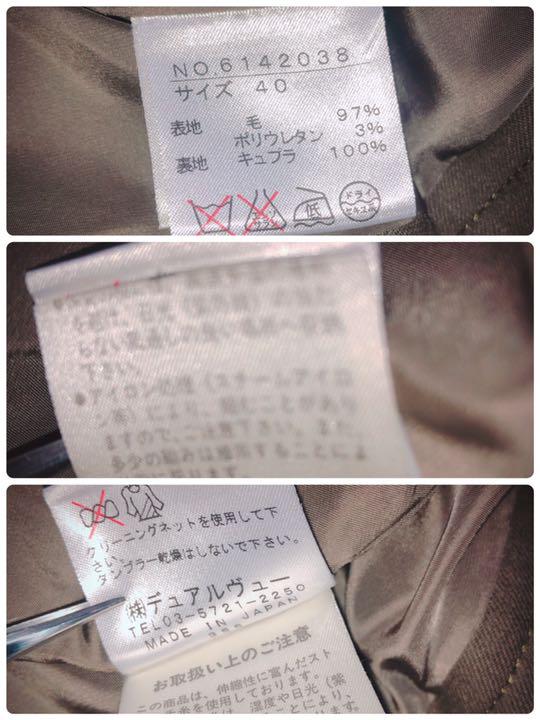 NO.6142038
サイズ 40
表地 毛 97%
ポリウレタン 3%
裏地 キュプラ 100%
低
ドライ
セキユ系
下さい。
●アイロン処理(スチームアイロ
ン等)により、縮むことがあり
ますので、ご注意下さい。また、
多少の縮みは着用することによ
クリーニングネットを使用して下
さい。
タンブラー乾燥はしないで下さい。
㈱デュアルヴュー
TEL03-5721-2250
MADE IN JAPAN
お取扱い上のご注意
この商品は、伸縮性に富んだスト
を使用しております。
湿度や日光(紫